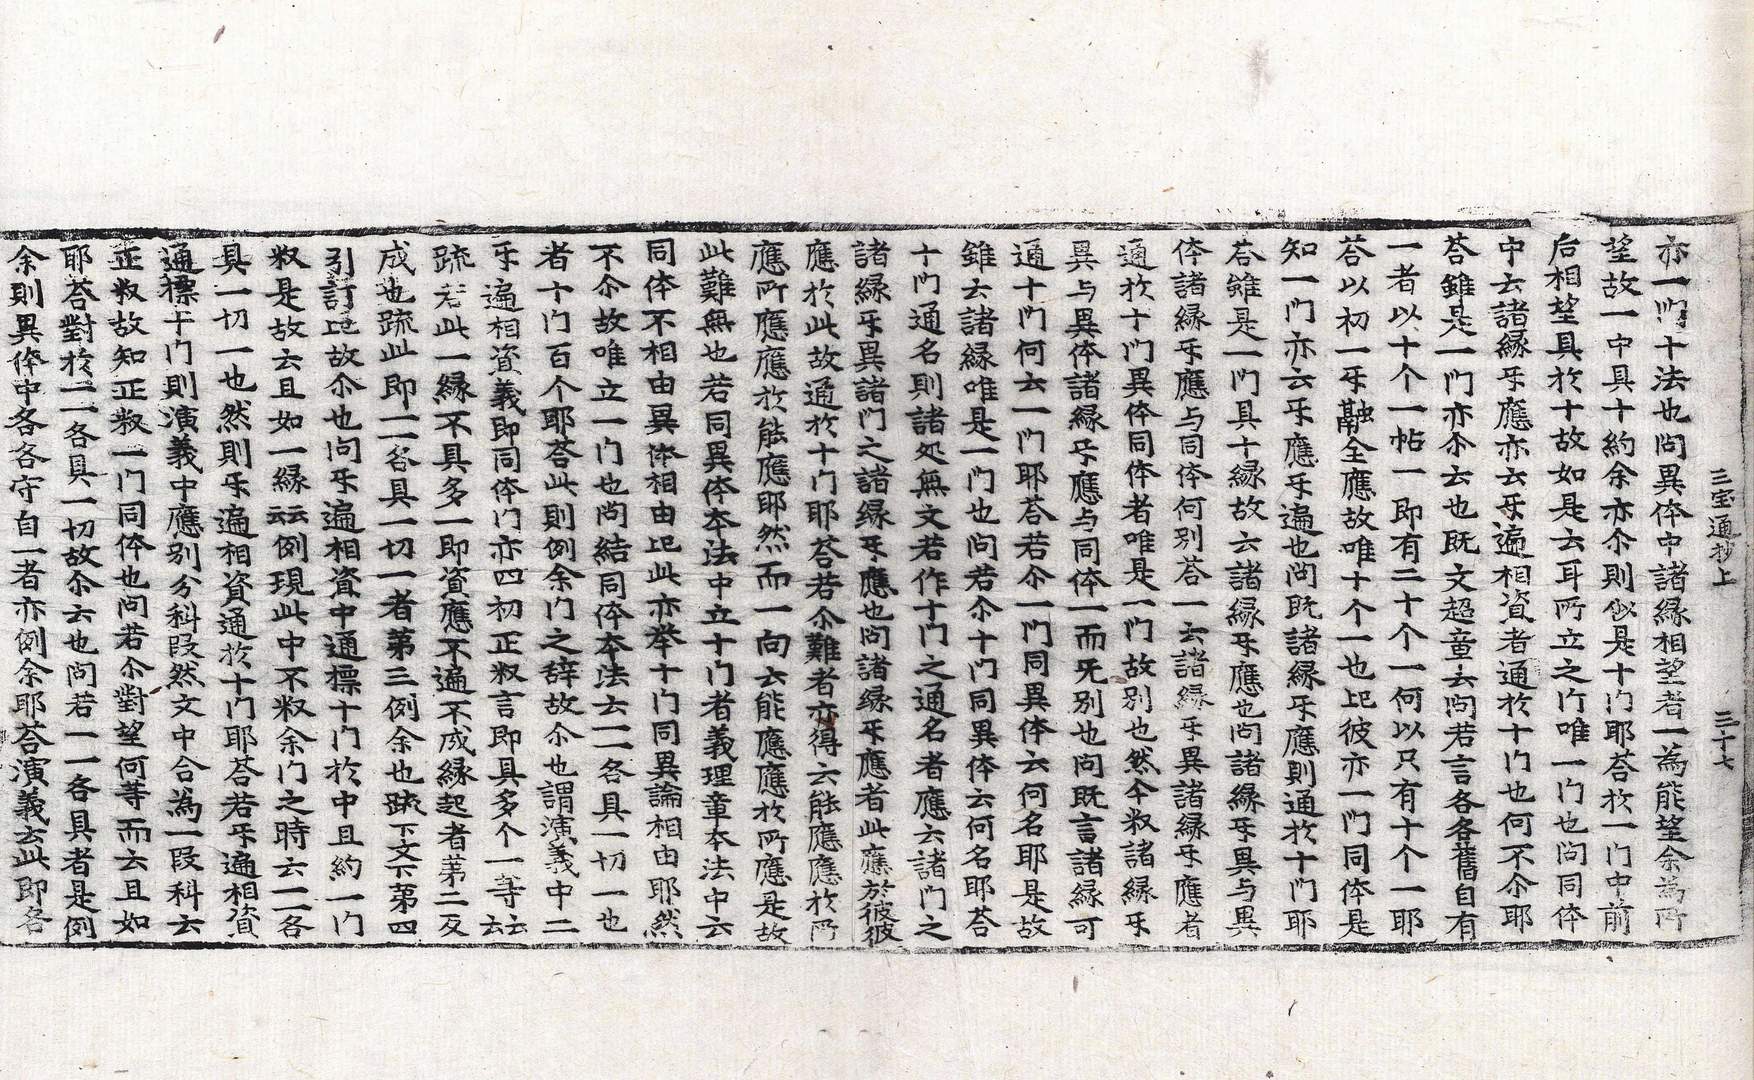 三宝通抄上　三十七
亦一門十法也问異体中諸縁相望者一為能望余為所
望故一中具十約余亦尒則似是十门耶荅扵一门中前
后相望具扵十故如是云耳所立之门唯一门也问同体
中云諸縁㸦應亦云㸦遍相資者通扵十门也何不尒耶
荅雖是一门亦尒云也既文超章云问若言各各舊自有
一者以十个一帖一即有二十个一何以只有十个一耶
荅以初一㸦融全應故唯十个一也比彼亦一门同体是
知一门亦云㸦應㸦遍也问既諸縁㸦應則通扵十门耶
荅雖是一门具十縁故云諸縁㸦應也问諸縁㸦異与異
体諸縁㸦應与同体何別荅一云諸縁㸦異諸縁㸦應者
通扵十门異体同体者唯是一门故別也然今叙諸縁㸦
異与異体諸縁㸦應与同体一而旡別也问既言諸縁可
通十门何云一门耶荅若尒一门同異体云何名耶是故
雖云諸縁唯是一门也问若尒十门同異体云何名耶荅
十门通名則諸处無文若作十门之通名者應云諸门之
諸縁㸦異諸门之諸縁㸦應也问諸縁㸦應者此應於彼彼
應扵此故通扵十门耶荅若尒難者亦得云能應應扵所
應所應應扵能應耶然而一向云能應應扵所應是故
此難無也若同異体本法中立十门者義理章本法中云
同体不相由異体相由比此亦举十门同異論相由耶然
不尒故唯立一门也问結同体本法云一一各具一切一也
者十门百个耶荅此則例余门之辞故尒也謂演義中二
㸦遍相資義即同体门亦四初正叙言即具多个一等云云
疏若此一縁不具多一即資應不遍不成縁起者第二反
成也疏此即一一各具一切一者第三例余也疏下文下第四
引訂也故尒也问㸦遍相資中通標十门扵中且約一门
叙是故云且如一縁云云例現此中不叙余门之時云一一各
具一切一也然則㸦遍相資通扵十门耶荅若㸦遍相資
通標十门則演義中應別分科段然文中合為一段科云
正叙故知正叙一门同体也问若尒對望何等而云且如
耶荅對扵一一各具一切故尒云也问若一一各具者是例
余則異体中各各守自一者亦例余耶荅演義云此即各